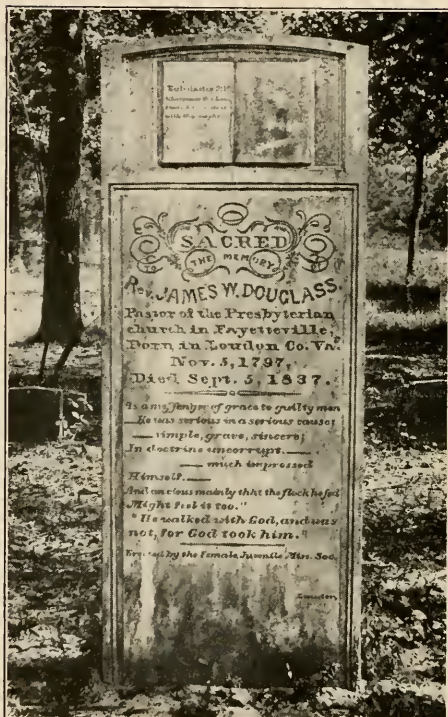 Ecclesiastes 9:10
Whatsoever thy hand
with thy might
SACRED
TO THE MEMORY OF
Rev. JAMES W. DOUGLASS.
Pastor of the Presbyterian
church in Fayetteville,
Born in Loudon Co. Va.
Nov. 5, 1797,
Died Sept. 5, 1837.
As a messenger of grace to guilty men
He was serious in a serious cause;
simple, grave, sincere;
In doctrine uncorrupt.
much impressed
Himself.
And anxious mainly that the flock he fed
Might feel it too."
"He walked with God, and was
not, for God took him."
Erected by the Female Juvenile Mis. Soc.
Lauder